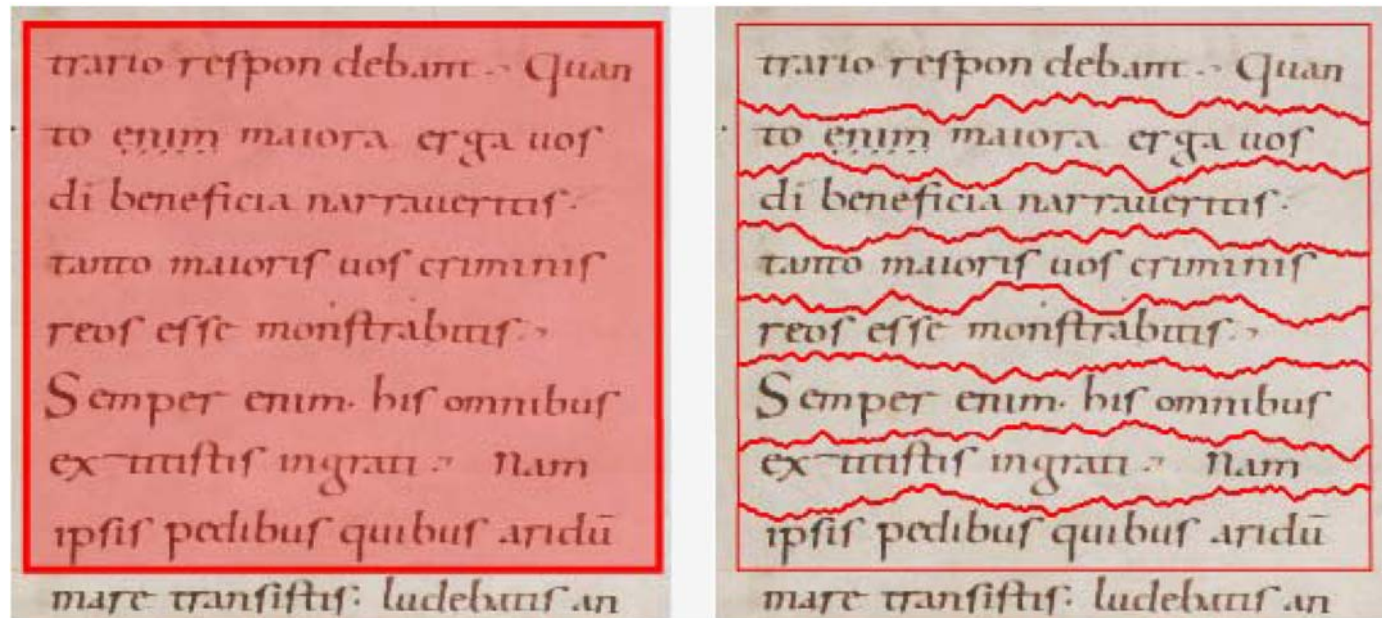 trario reſpon debant. Quan
to enim maiora erga uoſ
di beneficia narraueritiſ.
tanto maioriſ uoſ criminiſ
reoſ eſſe monſtrabitiſ.
Semper enim. hiſ omnibuſ
extitiſtiſ ingrati. Nam
ipſiſ pedibuſ quibuſ aridū
mare tranſiſtiſ. ludebatiſ an
trario reſpon debant. Quan
to enim maiora erga uoſ
di beneficia narraueritiſ.
tanto maioriſ uoſ criminiſ
reoſ eſſe monſtrabitiſ.
Semper enim. hiſ omnibuſ
extitiſtiſ ingrati. Nam
ipſiſ pedibuſ quibuſ aridū
mare tranſiſtiſ. ludebatiſ an